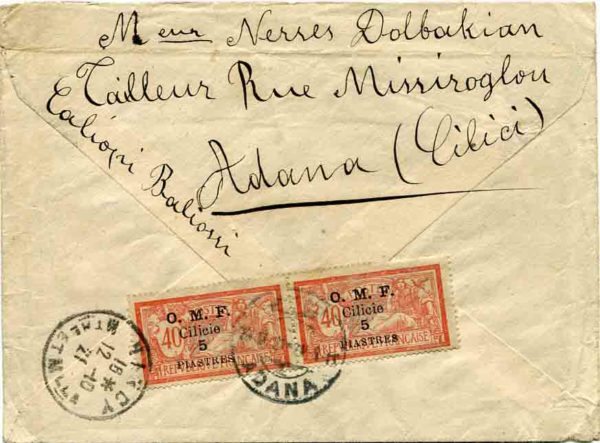 Meur Nerses Dolbakian
Tailleur Rue Missiroglou
Adana (Cilici)
Ealiopi Baliossi
O. M. F.
Cilicie
5
PIASTRES
40
REPUBLIQUE FRANÇAISE
O. M. F.
Cilicie
5
PIASTRES
40
REPUBLIQUE FRANÇAISE
ADANA
18*
12-10
21